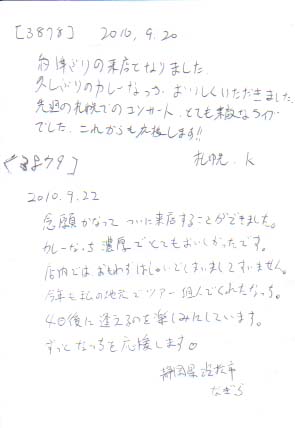 [3878] 2010.9.20
約1年ぶりの来店となりました。
久しぶりのカレーなっち、おいしくいただきました。
先週の札幌でのコンサート、とても素敵なライブ
でした。これからも応援します!!
札幌. K
[3879]
2010.9.22
念願かなって ついに来店することができました。
カレーなっち 濃厚でとてもおいしかったです。
店内では おもわずはしゃいでしまいましてすいません。
今年も私の地元でツアー組んでくれたなっち。
4日後に逢えるのを楽しみにしています。
ずっとなっちを応援します♡
静岡県浜松市
なぎら